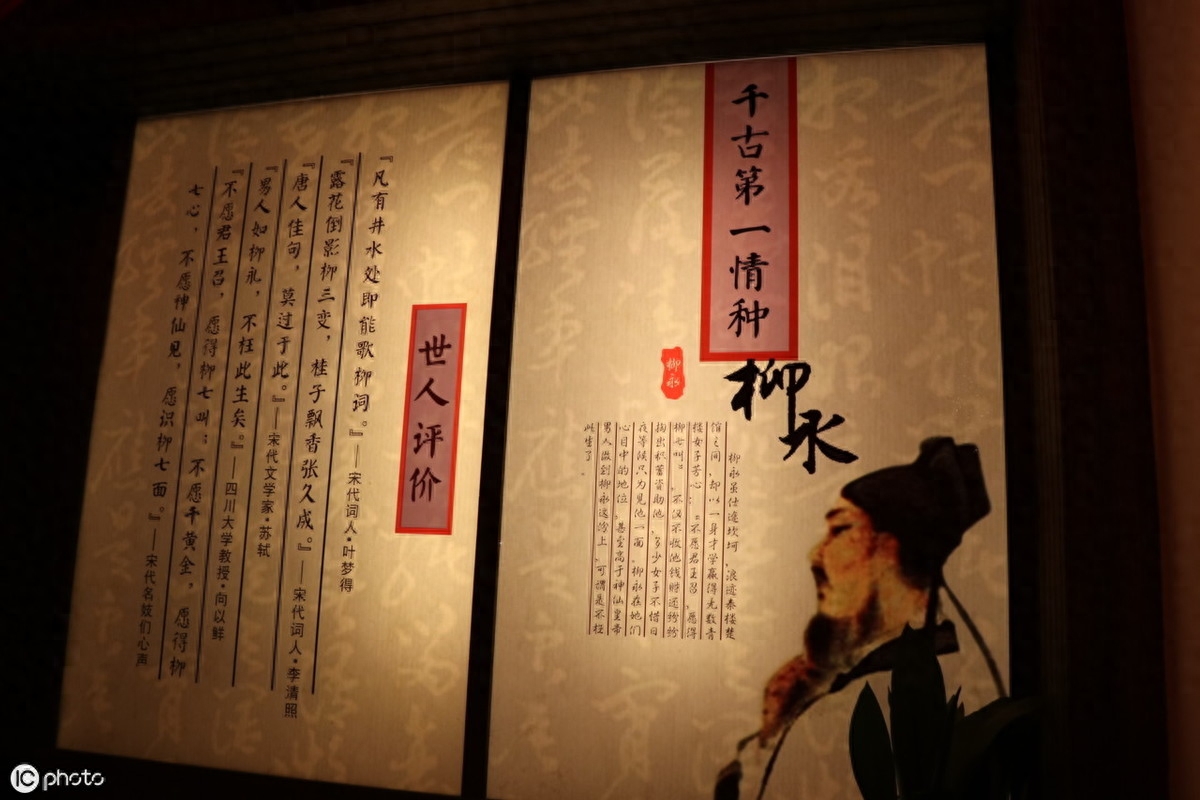 千古第一情种
柳永
柳永
柳永虽仕途坎坷，浪迹秦楼楚
馆之间，却以一身才学赢得无数青
楼女子芳心：“不愿君王召，愿得
柳七叫”。不仅不收他钱财还纷纷
掏出积蓄资助他。多少女子不惜日
夜等候只为见他一面。柳永在她们
心目中的地位，甚至高于神仙皇帝
男人做到柳永这份上，可谓是不枉
此生了。
世人评价
『凡有井水处即能歌柳词。』——宋代词人·叶梦得
『露花倒影柳三变，桂子飘香张久成。』——宋代词人·李清照
『唐人佳句，莫过于此。』——宋代文学家·苏轼
『男人如柳永，不枉此生矣。』——四川大学教授·向以鲜
『不愿君王召，愿得柳七叫；不愿千黄金，愿得柳
七心，不愿神仙见，愿识柳七面。』——宋代名妓们心声
IC photo